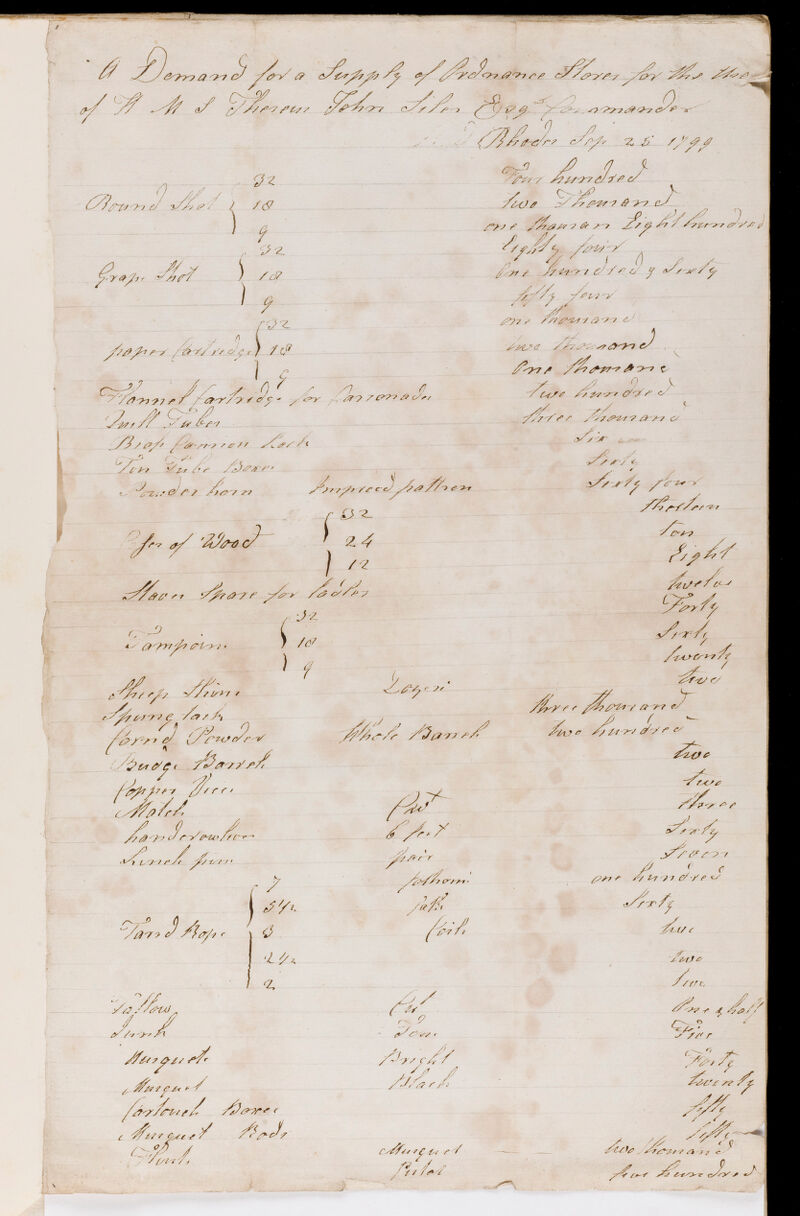 A Demand for a Supply of Ordnance Stores for the Use
of H M S Theseus John Stiles Esqr. Commander
Rhodes Sep 25 1799
32 Four hundred
Round Shot 18 two Thousand
9 one thousan Eight hundred
32 Eighty four
Grape Shot 18 One hundred & Sixty
9 fifty four
32 one thousand
paper Cartridge 18 two thousand
9 One thousand
Flannel Cartridge for Carronades two hundred
Quill Tubes three thousand
Brass Cannon Locks Six
Tin Tube Boxes Sixty
Powder horn Improved pattren Sixty four
32 thirteen
of Wood 24 ten
12 Eight
Staves Spare for ladles twelve
32 Forty
Tampions 18 Sixty
9 twenty
Sheep Skins Dozen two
Spung tacks three thousand
Cornd Powder Whole Barrels two hundred
Budge Barrels two
Copper Vices two
Match Cwt three
handcrowlevers 6 feet Sixty
pair Seven
7 fathom one hundred
5 1/2 fath Sixty
Tard Rope 3 Coils two
2 1/2 two
2 two
Tallow Cwt One & half
Junk Tons Five
Musquets Bright Forty
Musquet Black twenty
Cartouch Boxes fifty
Musquet Rods fifty
Flints Musquet two thousand
Pistol five hundred